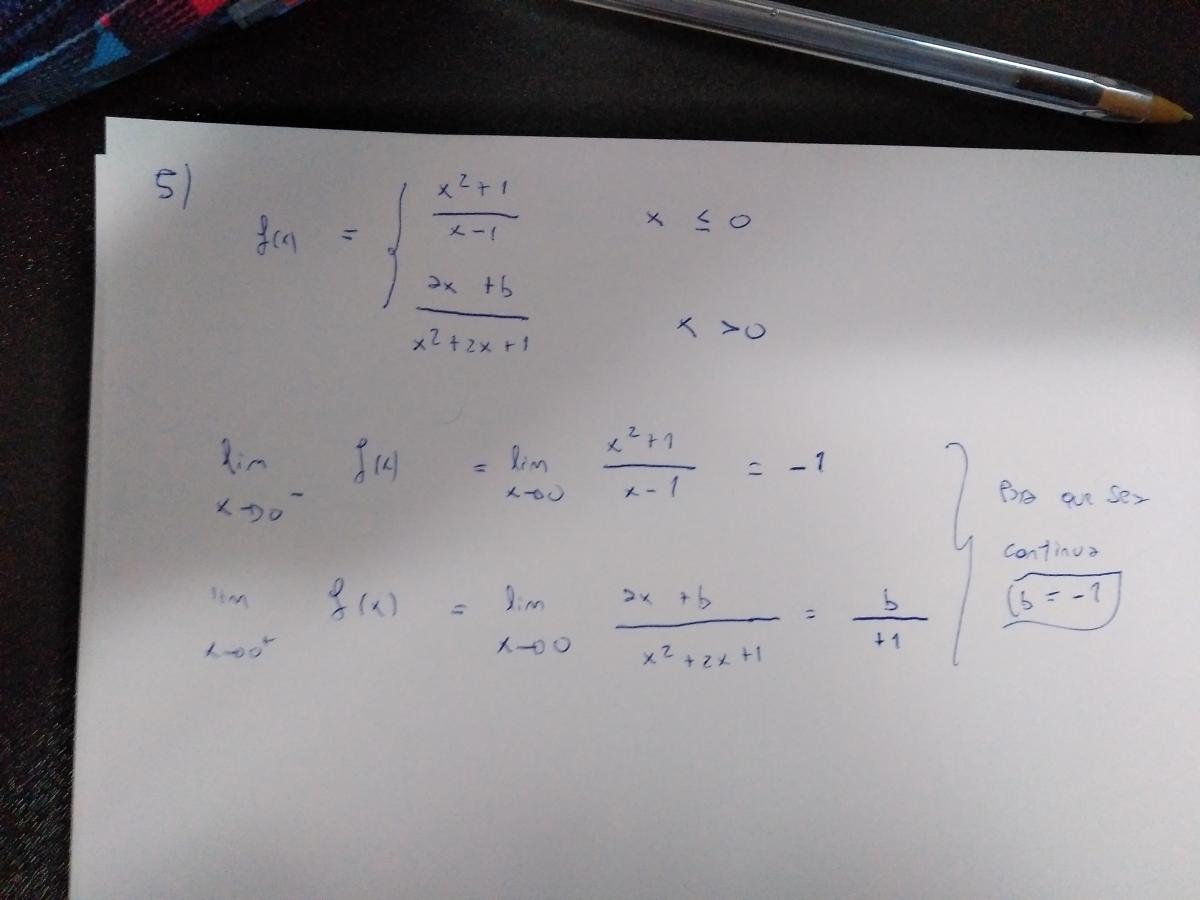 5)
f(x) = { x²+1 / x-1 x ≤ 0
2x +b / x²+2x+1 x >0
lim x→0⁻ f(x) = lim x→0 x²+1 / x-1 = -1
lim x→0⁺ f(x) = lim x→0 2x +b / x²+2x+1 = b / +1
que sea
continua
b = -1